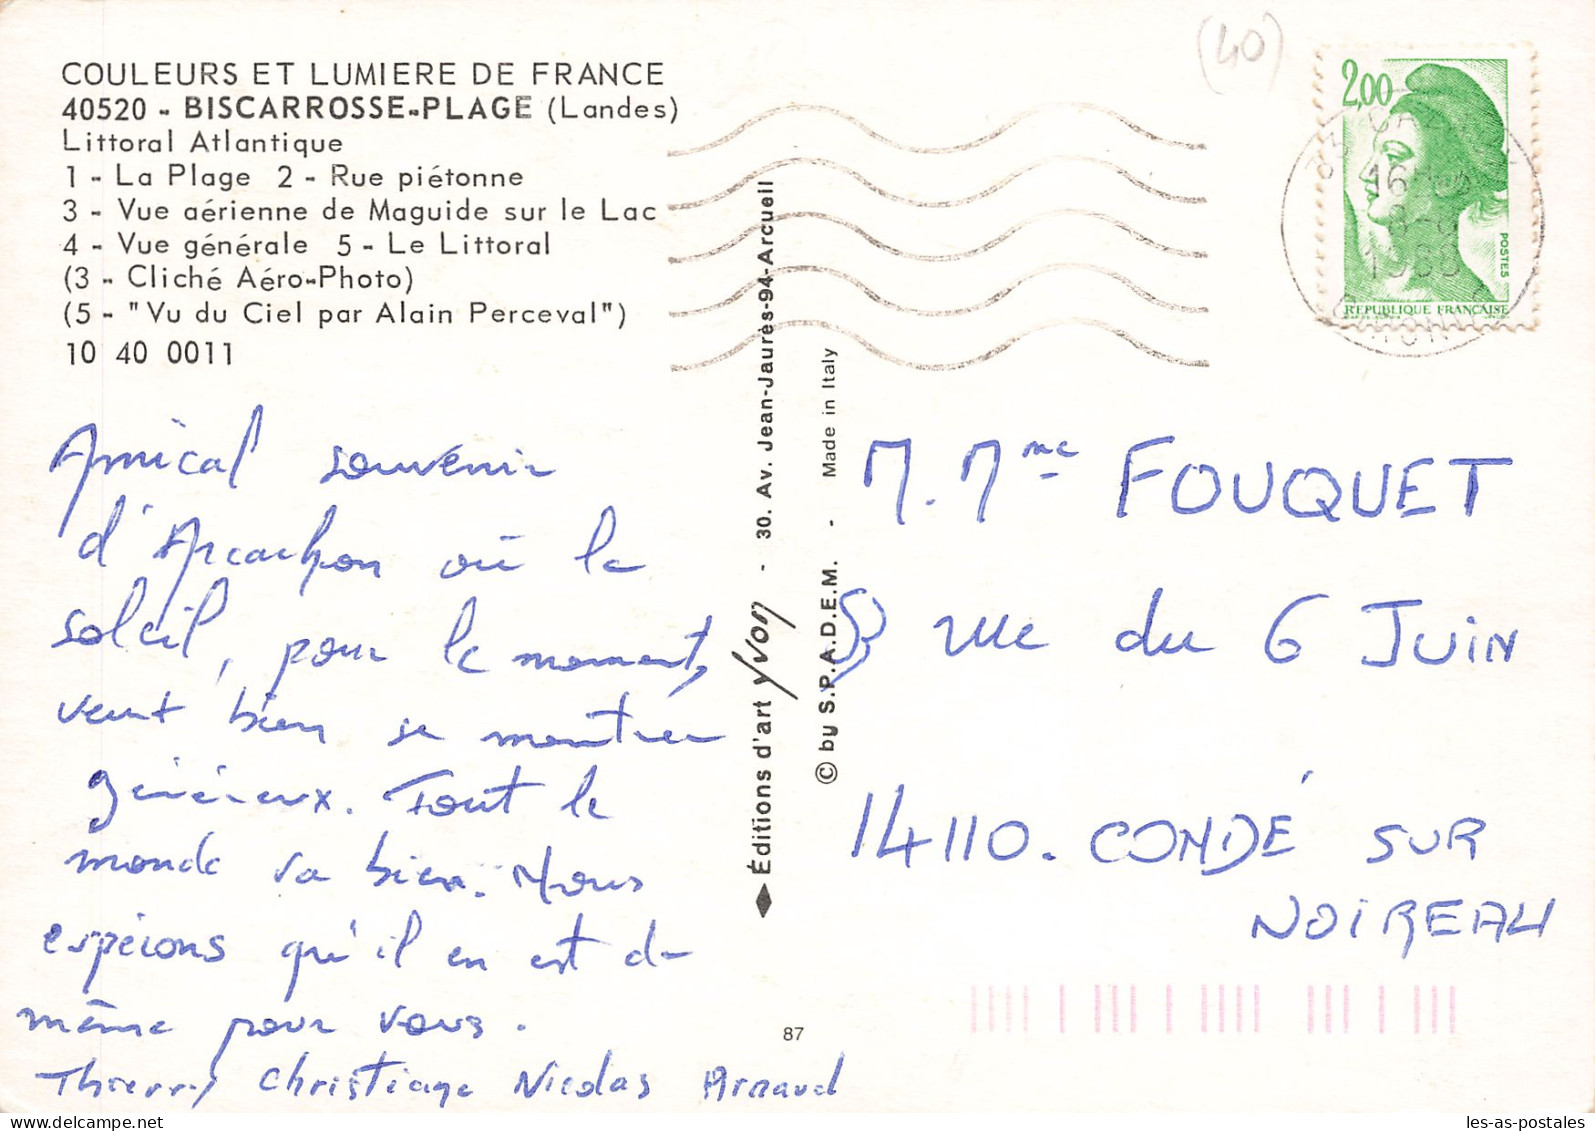 COULEURS ET LUMIERE DE FRANCE
40520 - BISCARROSSE-PLAGE (Landes)
Littoral Atlantique
1 - La Plage 2 - Rue piétonne
3 - Vue aérienne de Maguide sur le Lac
4 - Vue générale 5 - Le Littoral
(3 - Cliché Aéro-Photo)
(5 - "Vu du Ciel par Alain Perceval")
10 40 0011
(40)
2,00
POSTES
REPUBLIQUE FRANÇAISE
Amical souvenir
d'Arcachon où le
soleil, pour le moment,
veut bien se montrer
généreux. Tout le
monde va bien. Nous
espérons qu'il en est de
même pour vous.
Thierry Christiane Nicolas Arnaud
Éditions d'art Yvon - 30. Av. Jean-Jaurès-94-Arcueil
© by S.P.A.D.E.M. - Made in Italy
87
M. Mme FOUQUET
rue du 6 Juin
14110. CONDÉ SUR
NOIREAU
les-as-postales